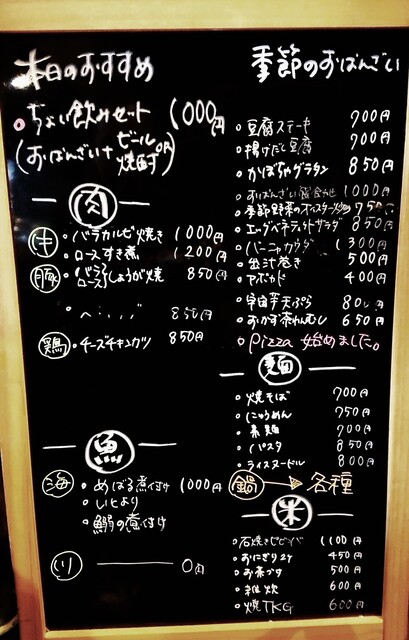 本日のおすすめ
ちょい飲みセット 1000円
(おばんざい+ビールOR焼酎)
肉
牛 バラカルビ焼き 1000円
ロースすき煮 1200円
豚 バラ ロース しょうが焼 850円
850円
鶏 チーズチキンカツ 850円
魚
海 めばる煮付け 1000円
いとより
鯛の煮付け
川 0円
季節のおばんざい
豆腐ステーキ 700円
揚げだし豆腐 700円
かぼちゃグラタン 850円
おばんざい盛合せ 1000円
季節野菜のオイスター炒め 750
エッグベネディクトサラダ 850円
バーニャカウダ 1300円
出汁巻き 500円
アボカド 400円
宇宙芋天ぷら 800円
おかず茶わんむし 650円
pizza 始めました。
麺
焼そば 700円
にゅうめん 750円
素麺 700円
パスタ 850円
ライスヌードル 800円
鍋 → 各種
米
石焼きビビンバ 1100円
おにぎり2ケ 450円
お茶づけ 500円
雑炊 600円
焼TKG 600円